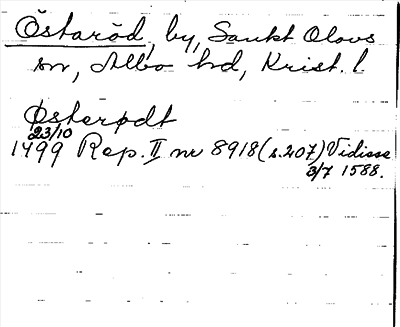 Östaröd, by, Sankt Olovs
sn, Albo hd, Krist. l
Østerødt
23/10
1499 Rep. II nr 8918 (s. 207) Vidisse
3/7 1588.